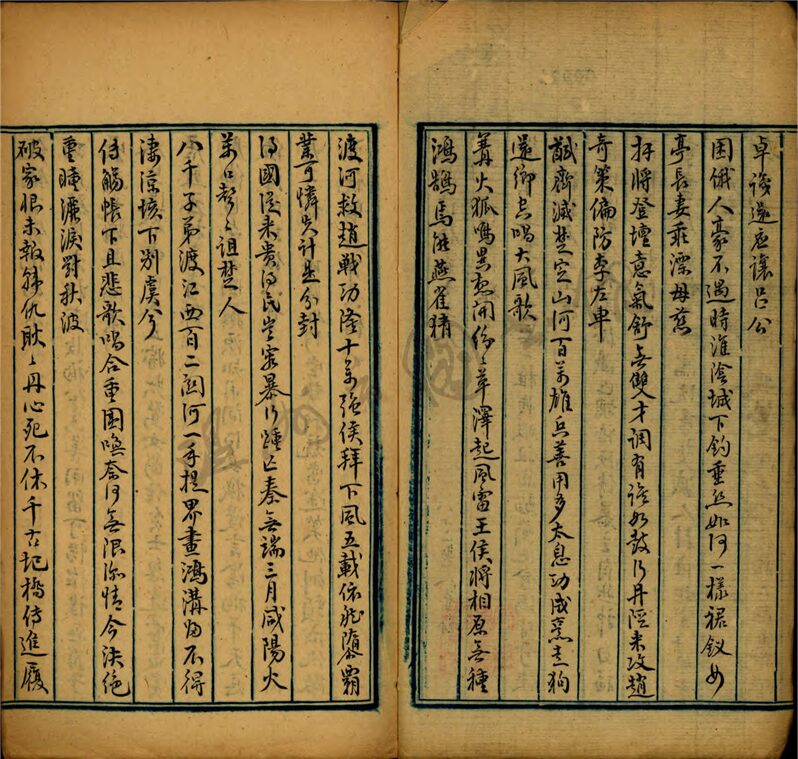 卓識還應讓呂公
困俄人豪不遇時淮陰城下釣垂絲如何一樣裙釵女
亭長妻乖漂母慈
拜將登壇意氣舒無雙才調有誰如鼓行井陘來攻趙
奇策偏防李左車
馘齊滅楚定山河百萬雄兵善用多太息功成烹走狗
還鄉空唱大風歌
篝火狐鳴異志開紛〻草澤起風雷王侯將相原無種
鴻鵠焉能燕雀猜
渡河救趙戰功隆十萬強侯拜下風五載依然隳霸
業可憐失計是分封
得國從來貴得民豈容暴行踵亡秦無端三月咸陽火
萬口聲〻詛楚人
八千子弟渡江西百二關河一手提界畫鴻溝留不得
淒涼垓下別虞兮
侍觴帳下且悲歌唱合重圍喚奈何無限深情今決絕
重瞳灑淚對秋波
破家恨未報韓仇耿〻丹心死不休千古圯橋侍進履